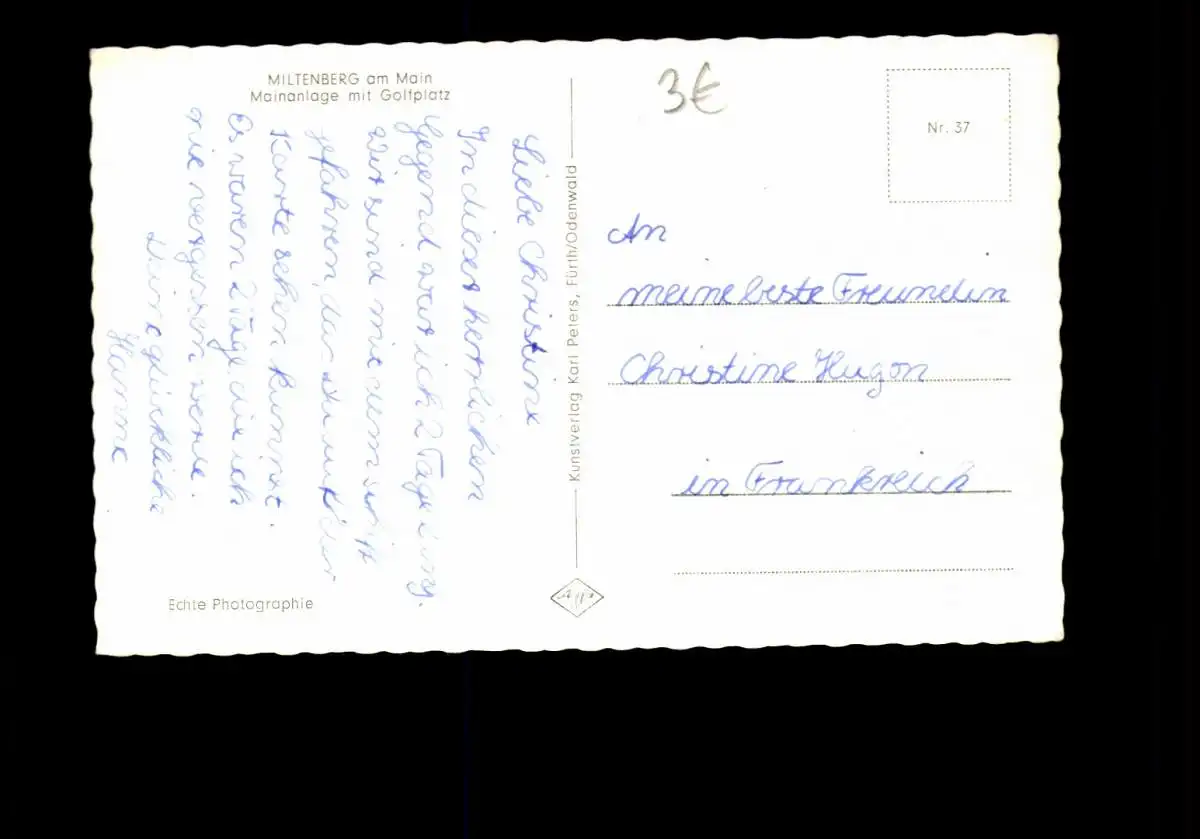 MILTENBERG am Main
Mainanlage mit Golfplatz
Liebe Christine
In dieser herrlichen
Gegend war ich 2 Tage lang.
Wir sind mit dem Schiff
gefahren, das Du auf der
Karte sehen kannst.
Es waren 2 Tage die ich
nie vergessen werde.
Deine glückliche
Hanne
Echte Photographie
Kunstverlag Karl Peters, Fürth/Odenwald
3€
Nr. 37
An
meine beste Freundin
Christine Hugon
in Frankreich